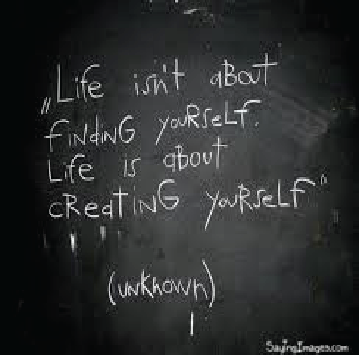 „Life isn't about
finding yourself.
Life is about
creating yourself"
(unknown)
SayingImages.com